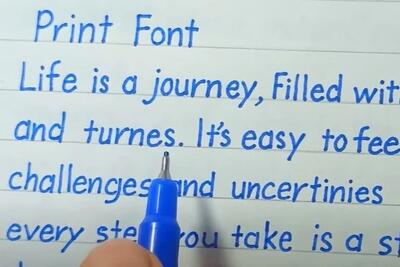 Print Font
Life is a journey, Filled wit
and turnes. It's easy to fee
challenges and uncertinies
every ste you take is a st